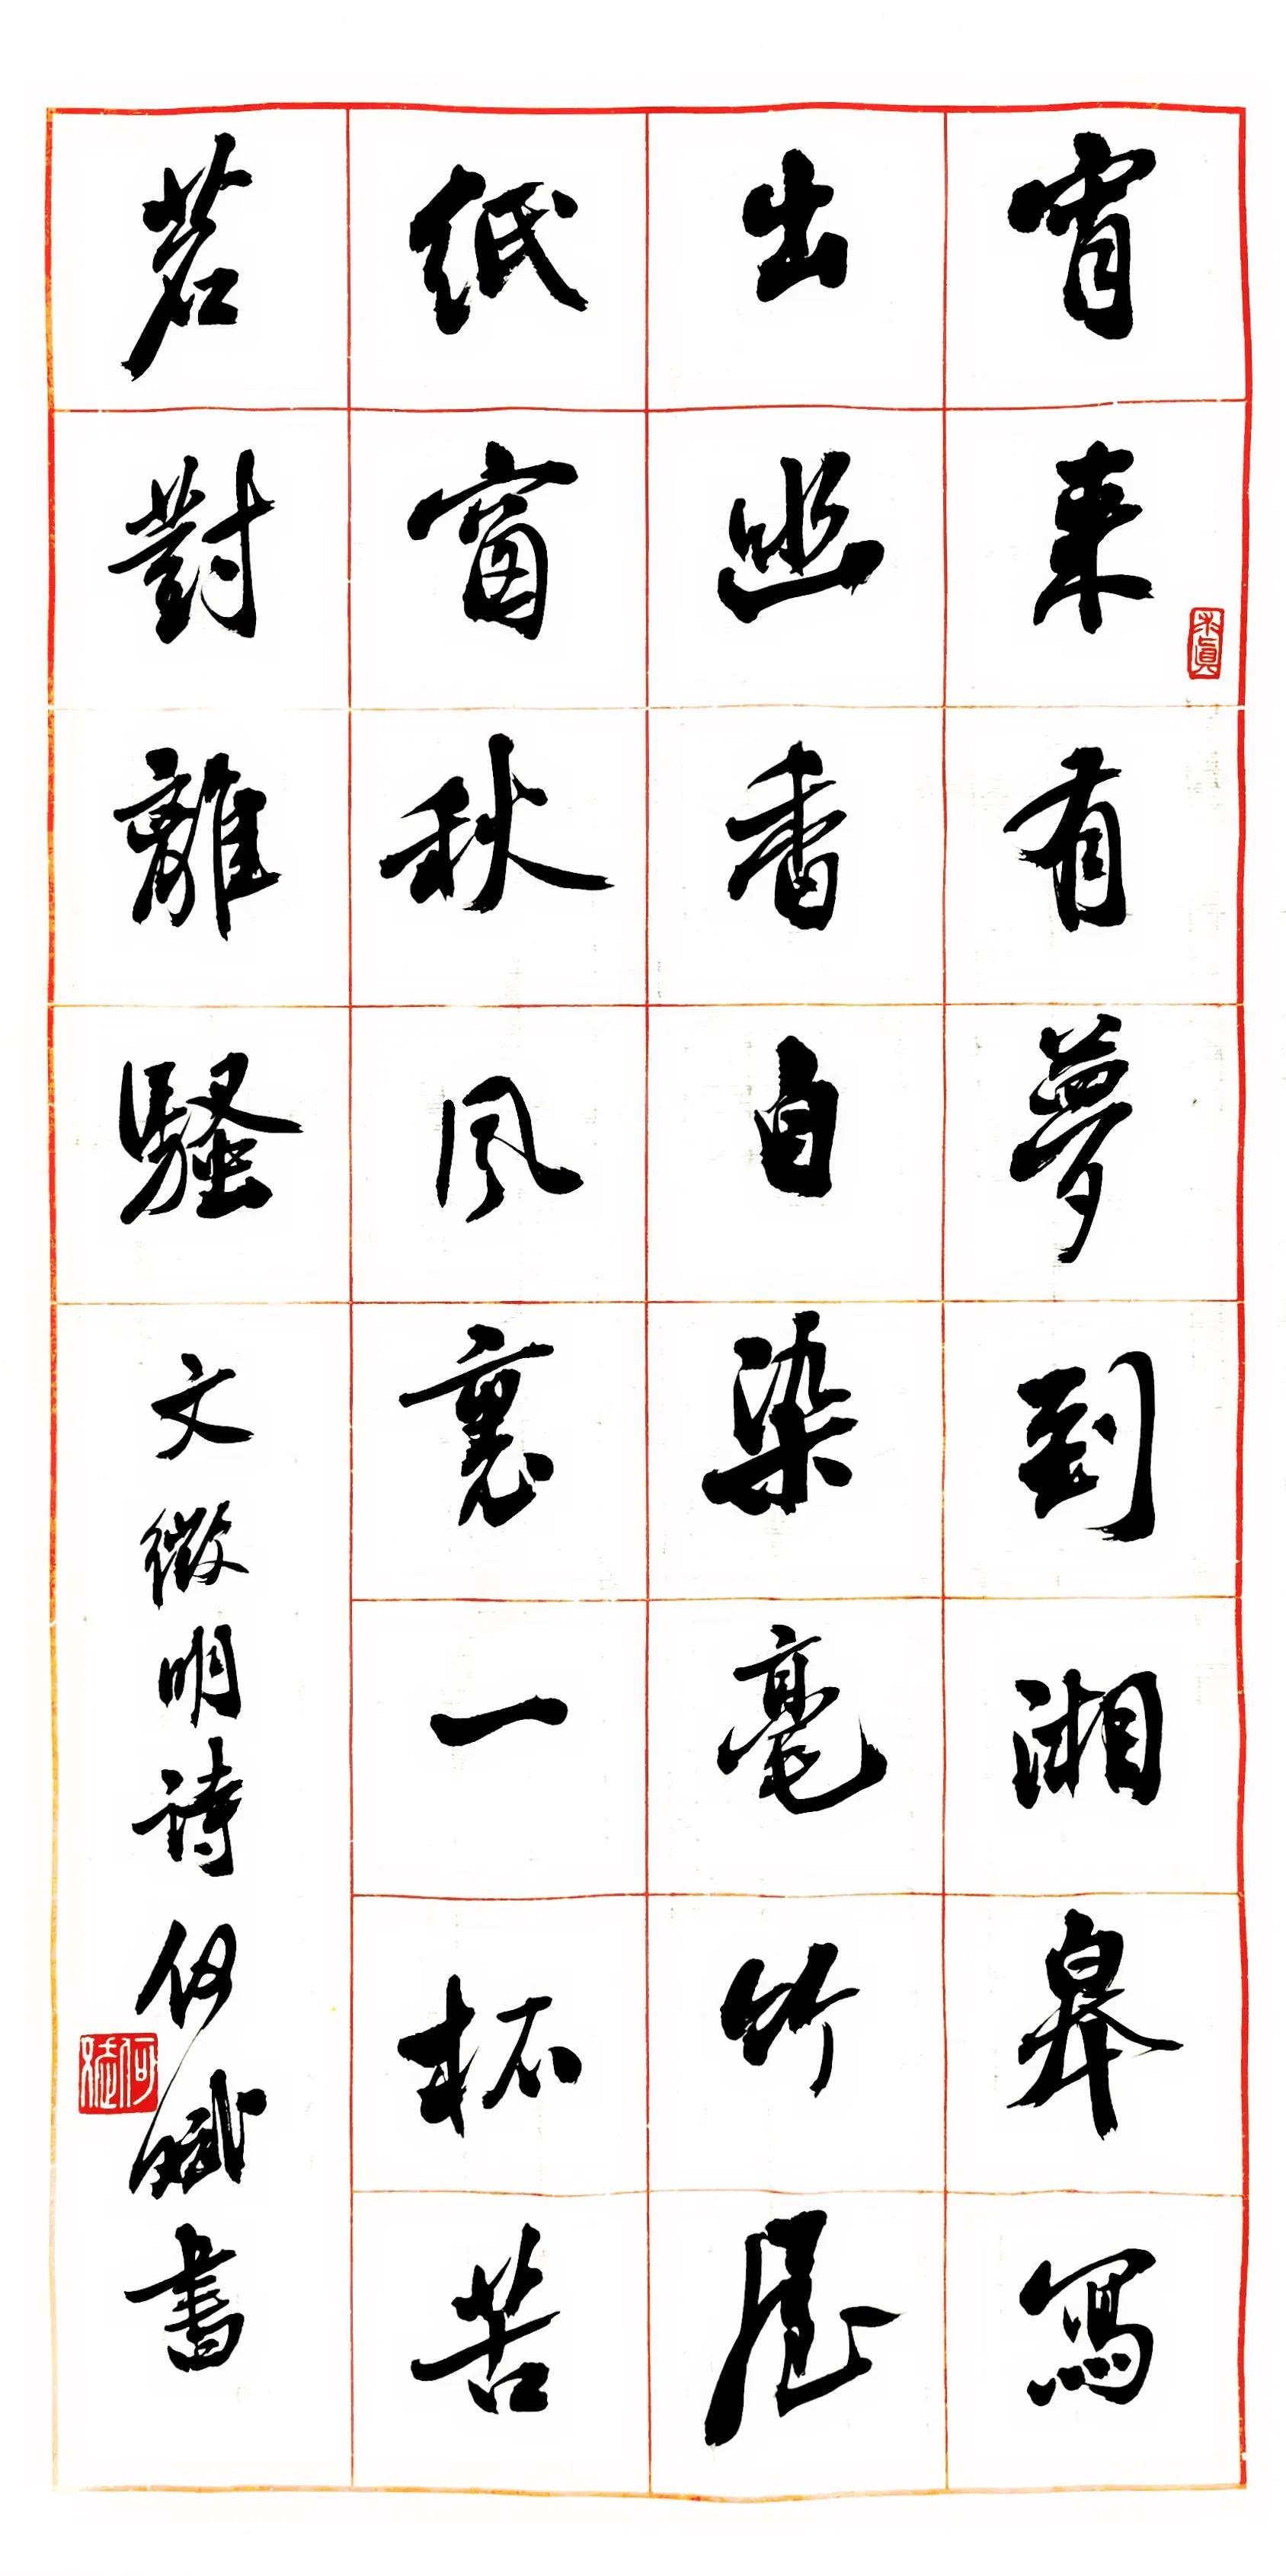 宵来有夢到湘皋寫
出幽香自染毫竹屋
紙窗秋風裏一杯苦
茗對離騷
文徵明詩何斌書
求真